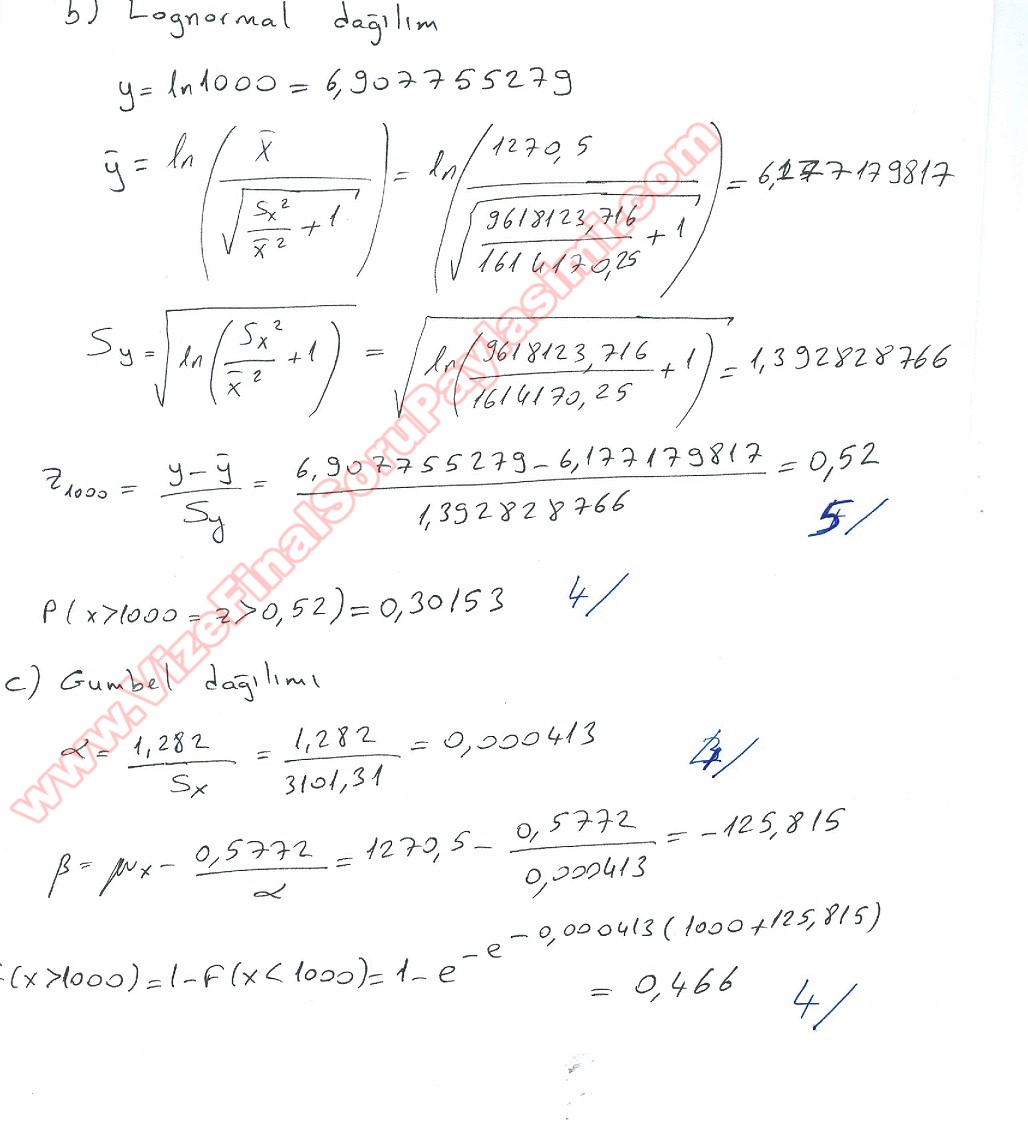 b) Lognormal dağılım
y = ln1000 = 6,907755279
ȳ = ln(x̄ / √(Sx²/x̄² + 1)) = ln(1270,5 / √(9618123,716/1614170,25 + 1)) = 6,177179817
Sy = √(ln(Sx²/x̄² + 1)) = √(ln(9618123,716/1614170,25 + 1)) = 1,392828766
z1000 = (y - ȳ)/Sy = (6,907755279 - 6,177179817)/1,392828766 = 0,52
5/
P(x>1000 = z>0,52) = 0,30153 4/
c) Gumbel dağılımı
α = 1,282/Sx = 1,282/3101,31 = 0,000413
β = μx - 0,5772/α = 1270,5 - 0,5772/0,000413 = -125,815
(x>1000) = 1-F(x<1000) = 1-e^-e^-0,000413(1000+125,815)
= 0,466 4/
www.VizeFinalSoruPaylasimi.com